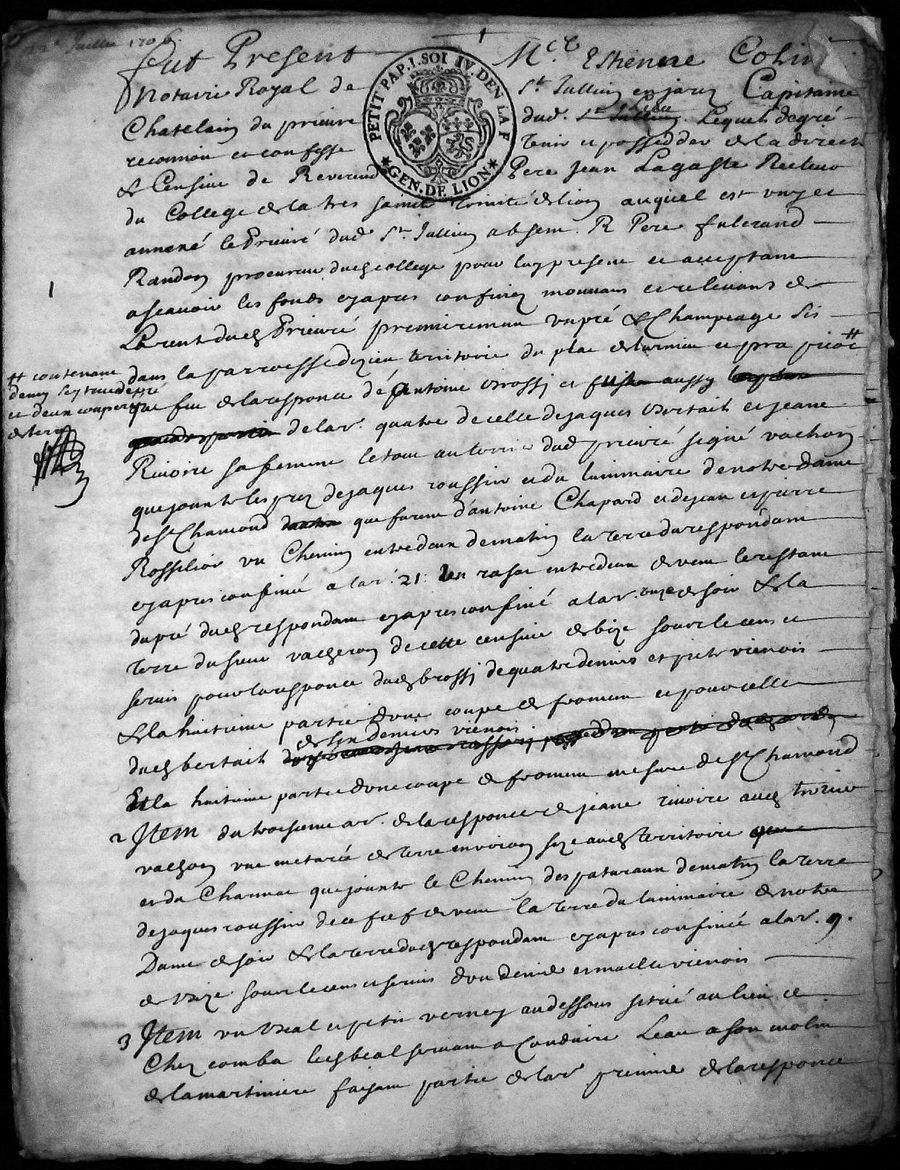 Juillet 1706
fut Present Mre Estienne Colin
Notaire Royal de St Jullien en jarez Capitaine
Chatelain du prieuré dud. lieu Lequel de gré
reconnoit et confesse tenir et posseder de la directe
& Censive de Reverend Pere Jean Lagaste Recteur
du College de la tres sainte trinité de lion auquel est uny et
annexé le Prieuré dud. St Jullien absent R Pere fulcrand
Randon procureur dud College pour luy present et acceptant
ascavoir les fonds cyapres confinez mouvans et relevans de
La rente dud Prieuré premierement un pré & Champeage sis
dans la parroisse dizieu territoire du plat de
# contenant
demy
et deux couperées
de terre
que fut de la responce de antoine brossy et aussy
de l'ar. quatre de celle de jaques bertait et jeane
Rivoire sa femme le tout au terrier dud prieuré signé vachon
que jouxte les prez de jaques roussin et du luminaire de notre dame
de St Chamond que furent d'antoine Chapard et de jean et pierre
Rossilion un Chemin entredeux de matin la terre du respondant
cyapres confinée a l'ar. 21. un rase entredeux de vent le restant
du pré dud respondant cyapres confiné a l'ar. onze de soir & la
terre du sieur vacheron de cette censive de bize sous le cens et
servis pour la responce dud brossy de quatre deniers et pite vienois
& la huitieme partie d'une coupe de froment et pour celle
dud bertait de six deniers vienois
Et la huitieme partie d'une coupe de froment mesure de St Chamond
2 Item du troisieme ar. de la responce de jeane rivoire aud terrier
vachon une meterée de terre environ size aud territoire
et du Channat que jouxte le Chemin des pasturaux de matin la terre
de jaques roussin de ce fief de vent la terre du luminaire de notre
Dame de soir & la terre dud respondant cyapres confinée a l'ar. 9.
de bize sous le cens et servis d'un denier et maille vienois
3 Item un beal et petit verney au dessous situé au lieu de
Chez comba led beal servant a Conduire Leau a son molin
de la martiniere faisant partie de l'ar premier de la responce
PETIT PAP. 1. SOL IV. DEN LA F
GEN. DE LION